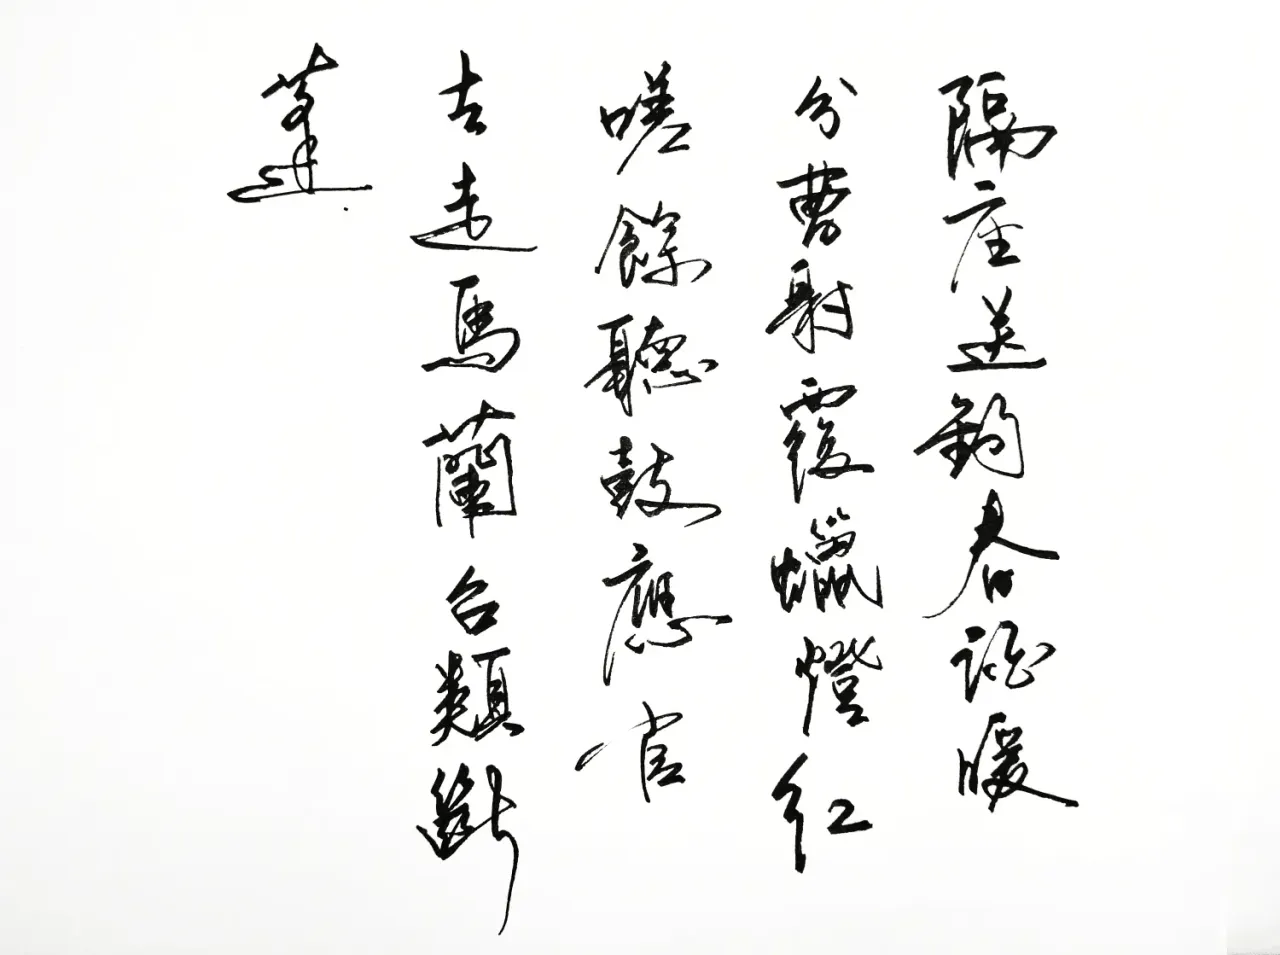 隔座送鈎春酒暖
分曹射覆蠟燈紅
嗟餘聽鼓應官
去走馬蘭台類斷
蓬